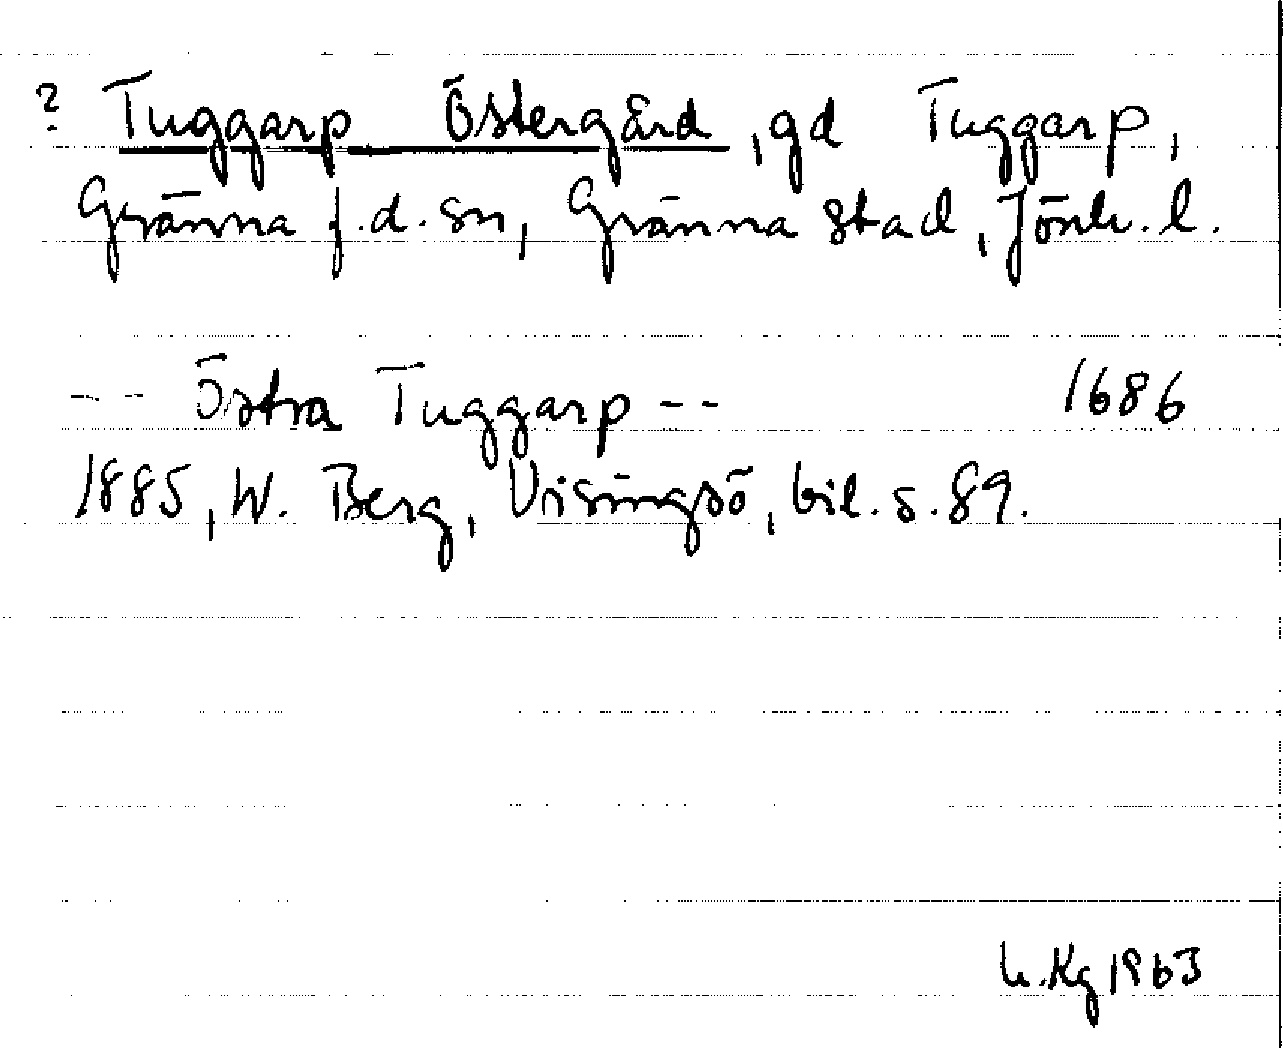 ? Tuggarp Östergård, gd Tuggarp,
Gränna f.d. sn, Gränna stad, Jönk. l.
-- Östra Tuggarp -- 1686
1885, W. Berg, Visingsö, bil. s. 89.
Kg 1963